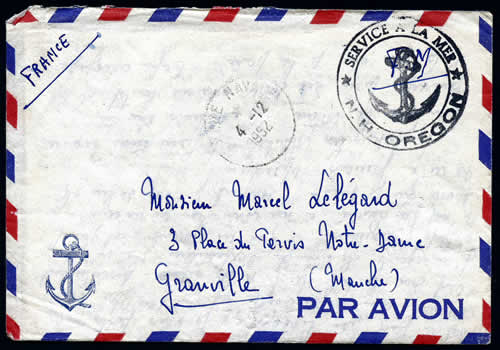 FRANCE
SERVICE A LA MER
FM
N.H. OREGON
4 -12
1952
Monsieur Marcel Lelégard
3 Place du Parvis Notre-Dame
Granville (Manche)
PAR AVION